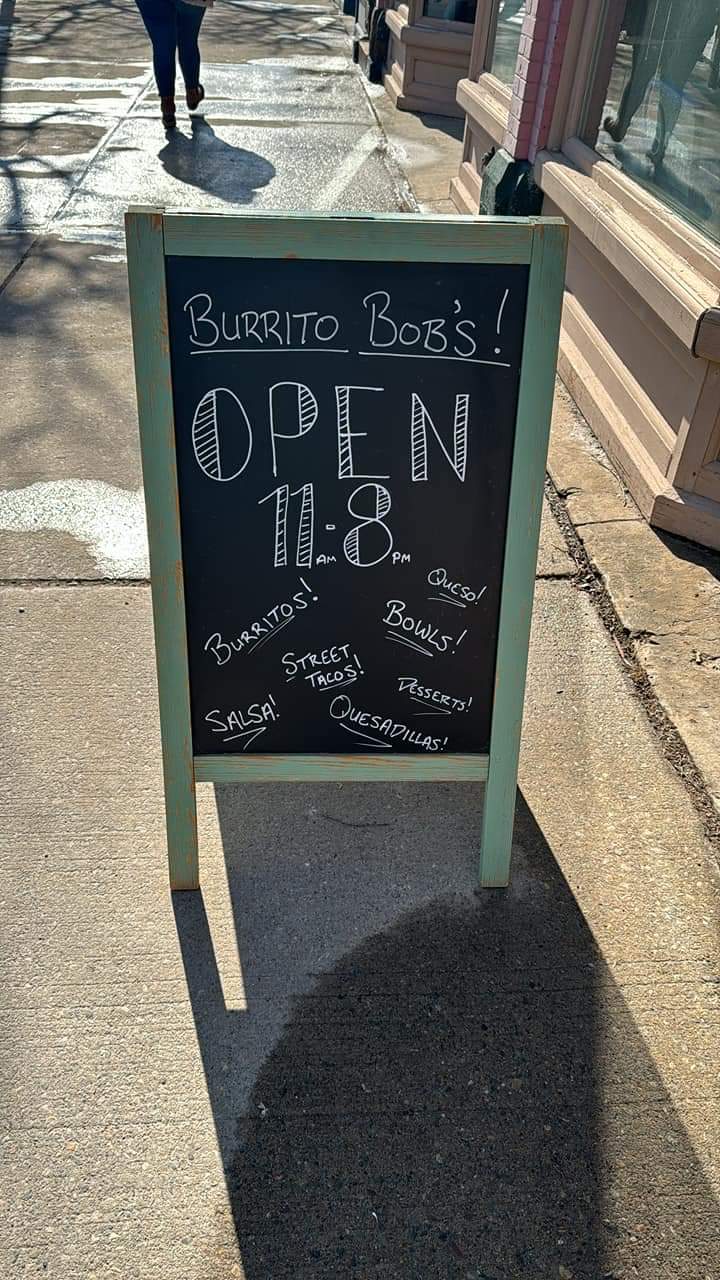 BURRITO BOB'S!
OPEN
11AM-8PM
QUESO!
BURRITOS!
BOWLS!
STREET
TACOS!
DESSERTS!
SALSA!
QUESADILLAS!